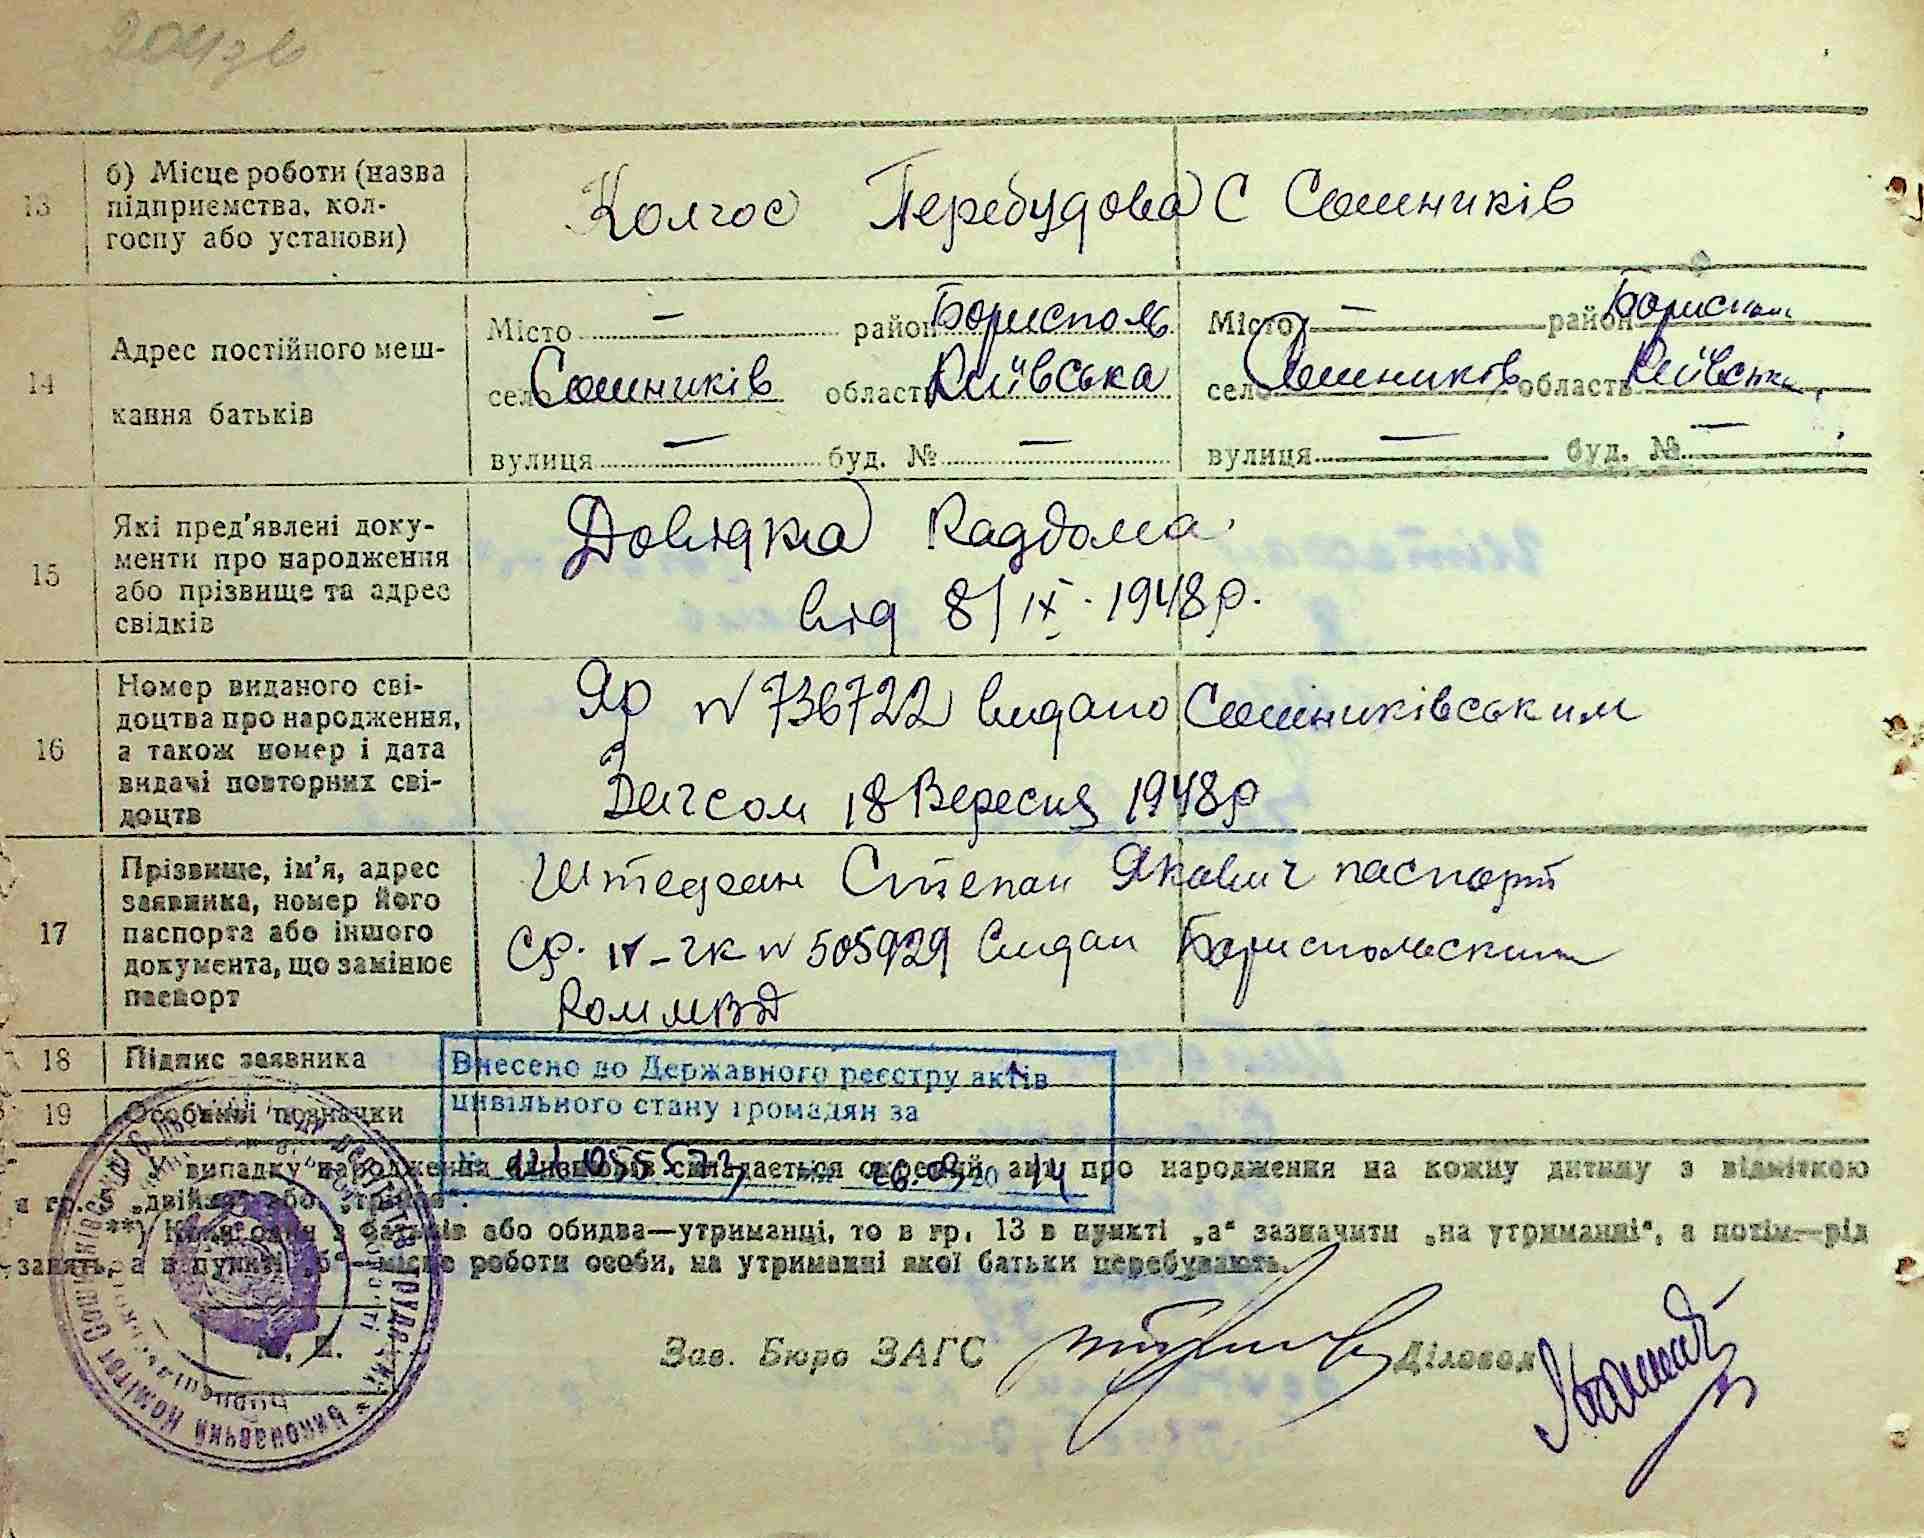 13 б) Місце роботи (назва підприємства, кол-госпу або установи)
Колгос Перебудова С Сошників
14 Адрес постійного меш-
кання батьків
Місто — район Бориспол
село Сошників область Київська
вулиця — буд. № —
Місто — район
село Сошников область Київська
вулиця — буд. № —
15 Які пред'явлені доку-
менти про народження
або прізвище та адрес
свідків
Довідка Раддома
від 8/IX. 1948р.
16 Номер виданого сві-
доцтва про народження,
а також номер і дата
видачі повторних сві-
доцтв
ЯР N 736722 видано Сошниківським
Загсом 18 Вересня 1948р
17 Прізвище, ім'я, адрес
заявника, номер його
паспорта або іншого
документа, що замінює
паспорт
Штефан Степан Якович паспорт
Ср. IV-чк N 505929 видан Бориспольским
РОМ МВД
18 Підпис заявника
19 Особливі позначки
Внесено до Державного реєстру актів
цивільного стану громадян за
20 14
У випадку народження близнюків складається окремий акт про народження на кожну дитину з відміткою
в гр. 5 „двійня“ або „трійня“.
**) Коли один з батьків або обидва—утриманці, то в гр. 13 в пункті „а“ зазначити „на утриманні“, а потім—рід
занять, а в пункті „б“—місце роботи особи, на утриманні якої батьки перебувають.
М. П.
Зав. Бюро ЗАГС
Діловод